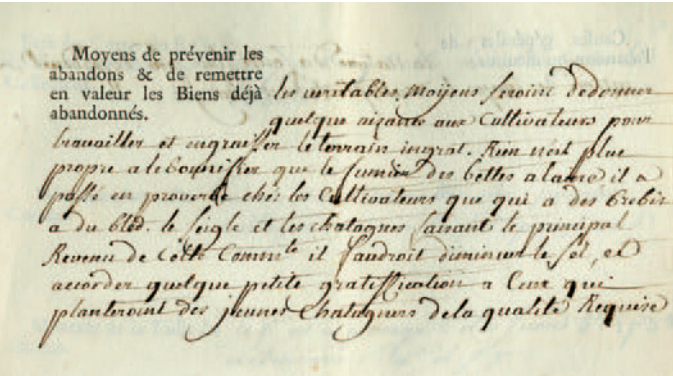 Moyens de prévenir les
abandons & de remettre
en valeur les Biens déjà
abandonnés.
les veritables moÿens seroint dedonner
quelque aizance aux Cultivateurs pour
travailler et engraisser le terrain ingrat. Rien n'est plus
propre a lebonnifier que le fumier des bettes alaine il a
passé en proverbe chés les Cultivateurs que qui a des Brebis
a du bled. le seigle et les chatagnes faisant le principal
Revenu de Cette Commté il faudroit diminuer le sel, et
accorder quelque petite gratiffication a Ceux qui
planteront des jeunes Chatagniers dela qualité Requise